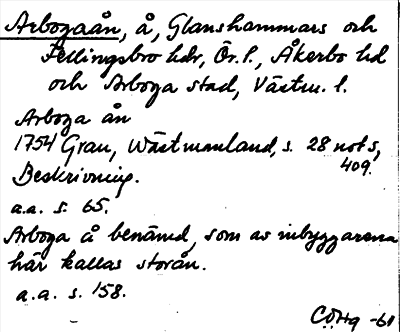 Arbogaån, å, Glanshammars och
Fellingsbro hdr, Ör. l., Åkerbo hd
och Arboga stad, Västm. l.
Arboga ån
1754 Grau, Wästmanland, s. 28 not s,
409.
Beskrivning.
a.a. s. 65.
Arboga å benämd, som av inbyggarena
här kallas storån.
a.a. s. 158.
-61